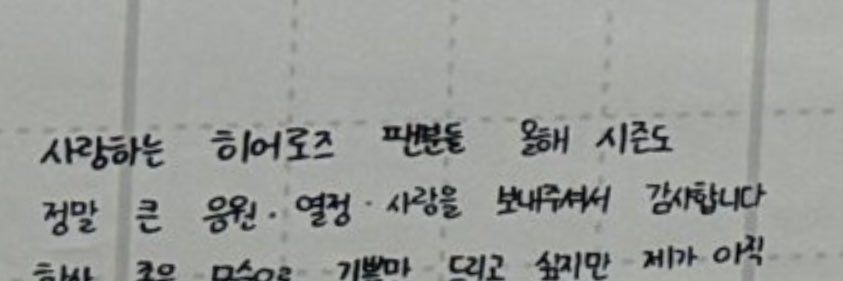 사랑하는 히어로즈 팬분들 올해 시즌도
정말 큰 응원·열정·사랑을 보내주셔서 감사합니다
항상 좋은 모습으로 기쁨만 드리고 싶지만 제가 아직